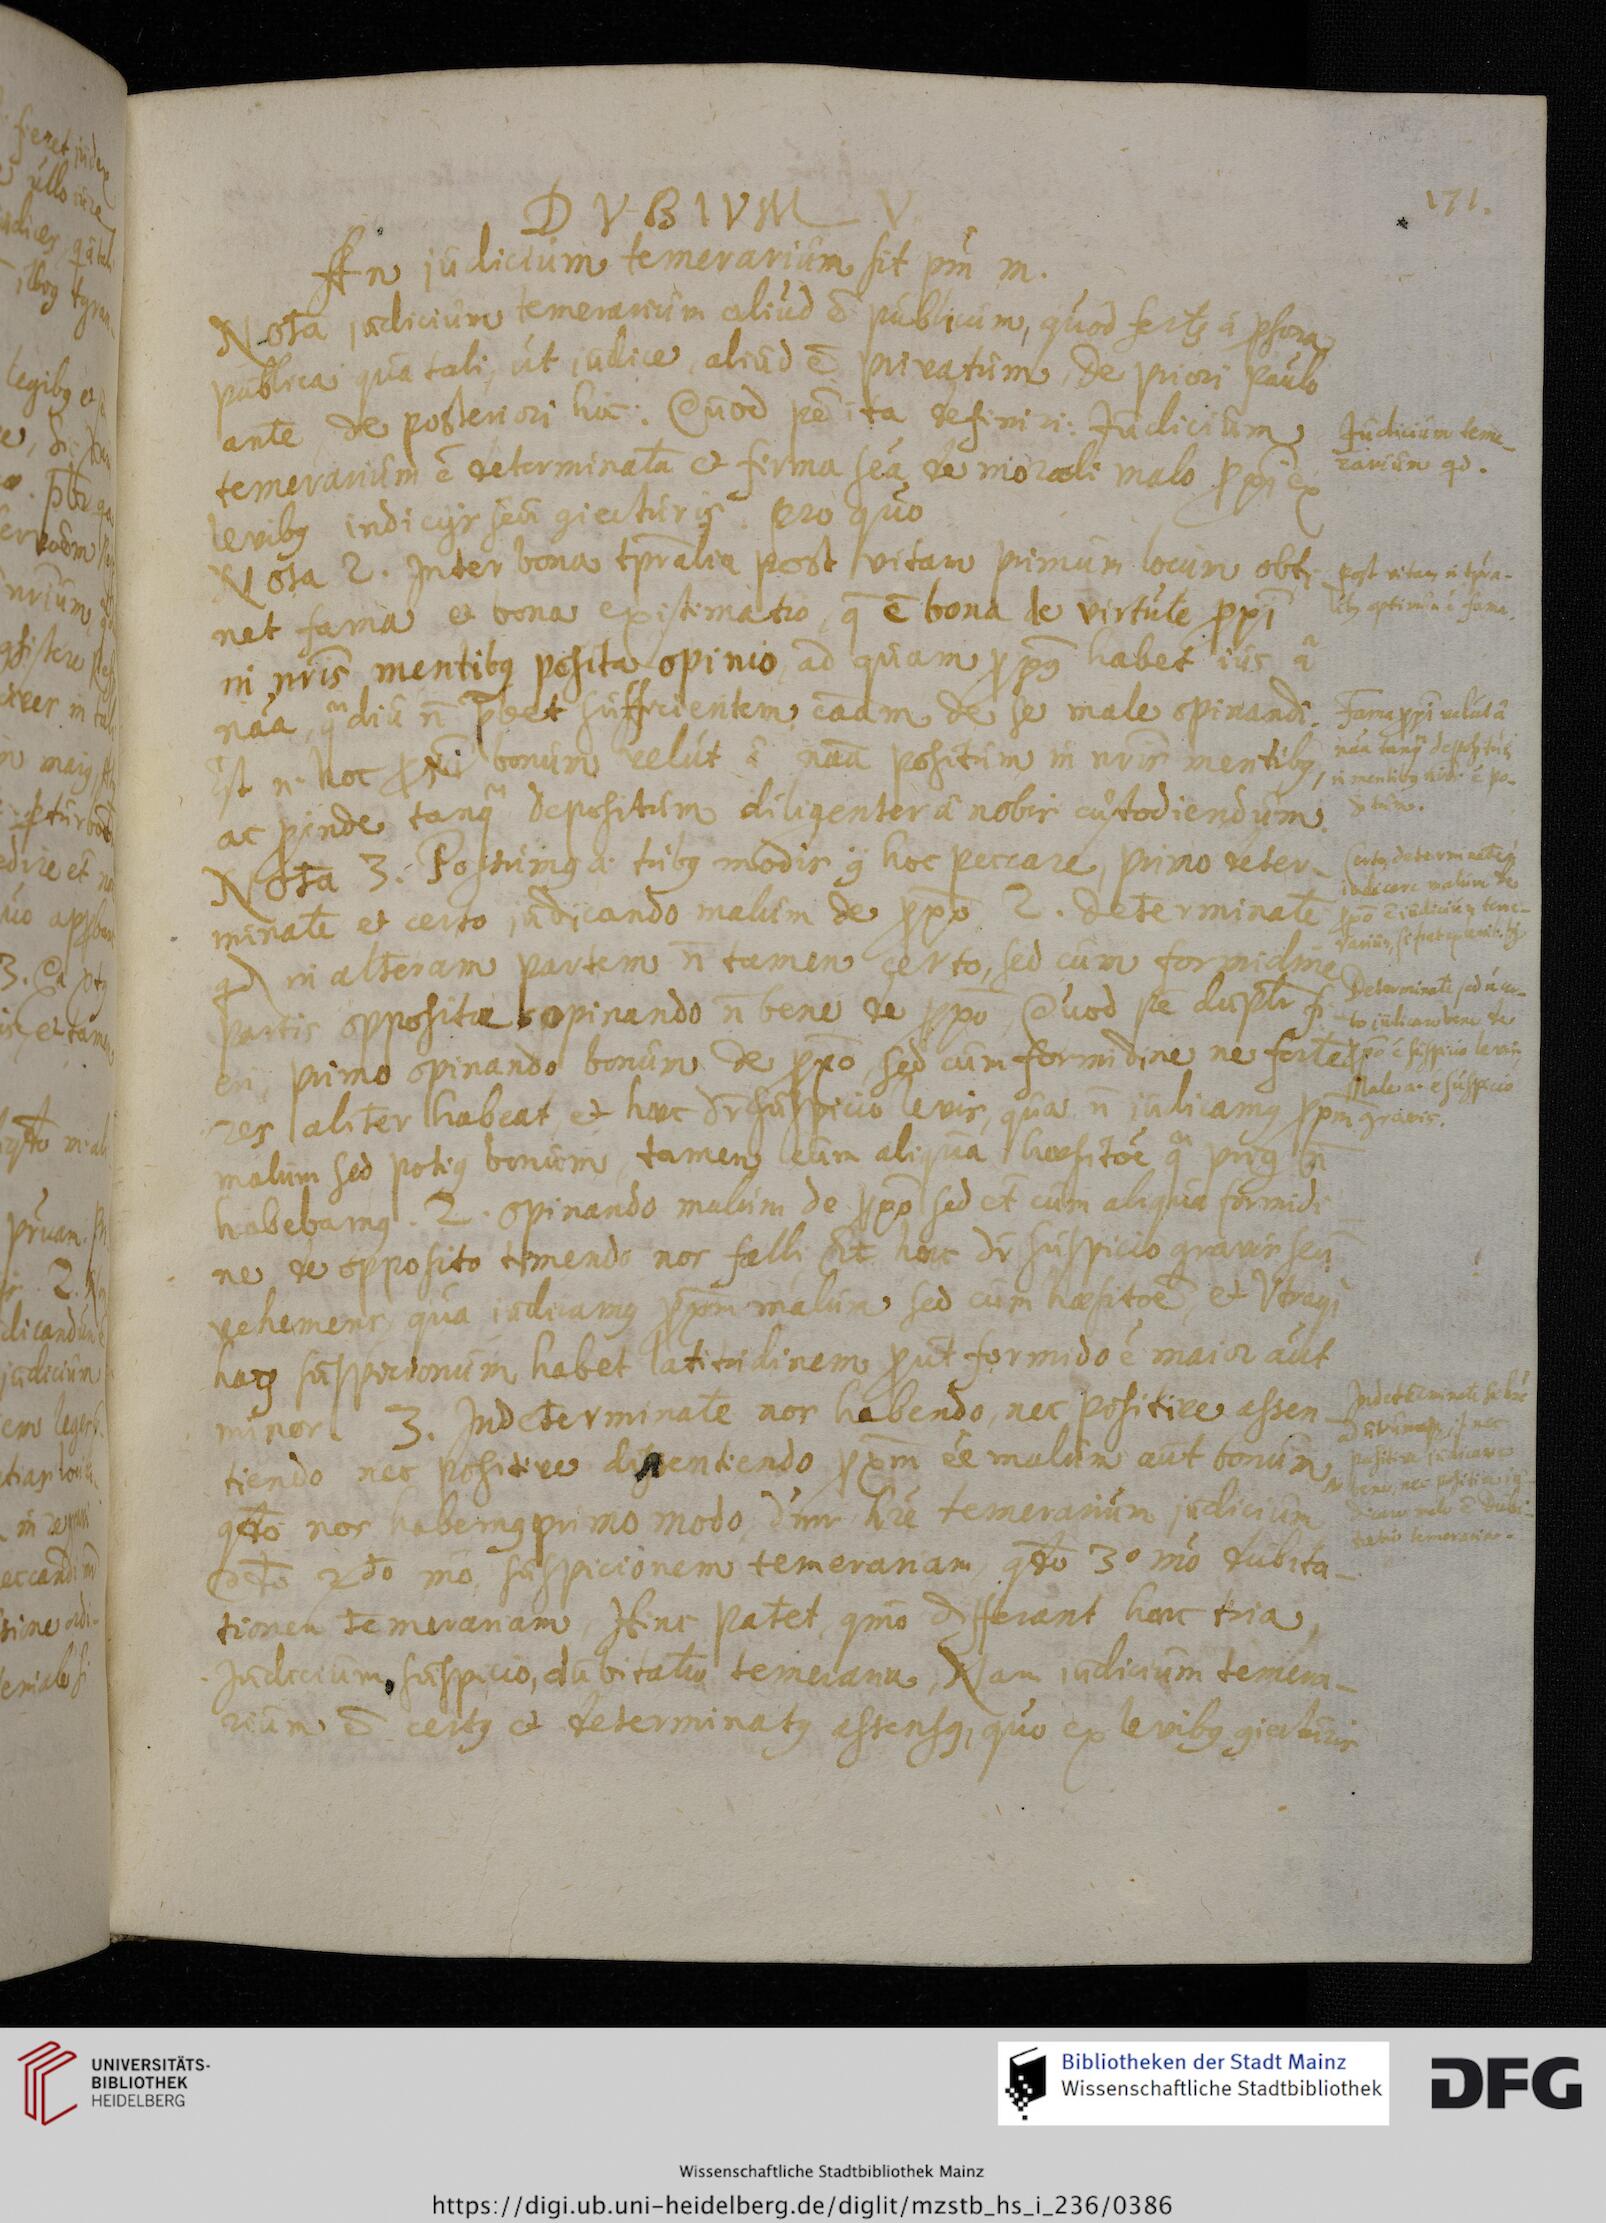 171.
DVBIVM V.
An judicium temerarium sit pm̄ m.
Nota judicium temerarium aliud ē publicum, quod fertʒ à psona
publica qua tali, ut judice, aliud ē privatum, de priori paulo
ante, de posteriori hic. Quod pēt ita definiri: Judicium
temerarium ē determinata et firma sn̄ia de morali malo ppi ex
levibꝰ indicijs seu ꝯiecturis. Pro quo
Nota 2. Inter bona tpralia post vitam primum locum obti-
net fama et bona existimatio, q̄ ē bona de virtute ppi
in nris mentibꝰ posita opinio, ad quam ppꝰ habet ius à
nāa, qm̄diu n̄ pbet sufficientem cāam de se male opinandi.
Est n. hoc ppi bonum velut à nāa positum in nris mentibꝰ,
ac pinde tanqm̄ depositum diligenter à nobis custodiendum.
Nota 3. Possumꝰ a. tribꝰ modis ꝯ hoc peccare, primo deter-
minate et certo judicando malum de ppo 2. determinate
qd in alteram partem n̄ tamen certo, sed cum formidine
partis oppositæ opinando n̄ bene de ppo, Quod pēt duplr fi-
eri, primo opinando bonum de ppo, sed cum formidine ne forte
res aliter habeat, et hæc dr suspicio levis, qua n̄ judicamꝰ ppm
malum sed potiꝰ bonum, tamen cum aliqua hæsitōe qm̄ priꝰ n̄
habebamꝰ. 2. opinando malum de ppo sed et cum aliqua formidi-
ne de opposito timendo nos falli, et hæc dr suspicio gravis seu
vehemens, qua iudicamꝰ ppm malum sed cum hæsitōe, et Vtraqꝫ
harꝫ suspicionum habet latitudinem put formido ē maior aut
minor. 3. Indeterminate nos habendo, nec positive assen-
tiendo nec positive dissentiendo ppm ēe malum aut bonum,
qdo nos habemꝰ primo modo, dmr hre temerarium judicium
Qdo 2do mō, suspicionem temerariam, qdo 3º mō dubita-
tionem temerariam, Hinc patet, qmō differant hæc tria,
Judicium, suspicio, dubitatio temeraria, Nam iudicium temera-
rium ē certꝰ et determinatꝰ assensꝰ, quo ex levibꝰ ꝯiecturis
Judicium teme-
rarium qd.
post vitam in tpra-
libꝰ optimum ē fama.
Fama ppi velut à
nāa tanq̄ depositum
in mentibꝰ ē po-
situm.
Certo determinate
iudicare malum de
ppo ē iudicium teme-
rarium,
Determinate sed n̄ cer-
to iudicare bene de
ppo ē suspicio levis,
Male a. ē suspicio
gravis.
Indeterminate se hre
ad utrumqꝫ, i. nec
positive iudicare
bene, nec positive iu-
dicare male ē dubi-
tatio temeraria.
UNIVERSITÄTS-
BIBLIOTHEK
HEIDELBERG
Bibliotheken der Stadt Mainz
Wissenschaftliche Stadtbibliothek
DFG
Wissenschaftliche Stadtbibliothek Mainz
https://digi.ub.uni-heidelberg.de/diglit/mzstb_hs_i_236/0386